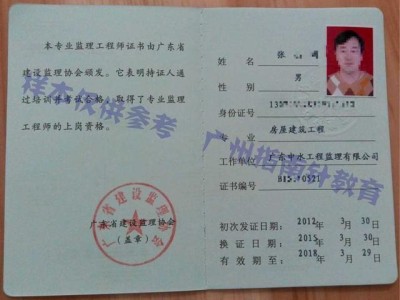 本专业监理工程师证书由广东省
建设监理协会颁发。它表明持证人通
过培训并考试合格，取得了专业监理
工程师的上岗资格。
样本仅供参考
广东省建设监理协会
广东省建设监理协会
（盖章）
姓 名 张
性 别 男
身份证号
专 业 房屋建筑工程
工作单位 广东中水工程监理有限公司
证书编号
广州指南针教育
初次发证日期：2012 年 3 月 30 日
换 证 日 期：2015 年 3 月 30 日
有 效 期 至：2018 年 3 月 29 日